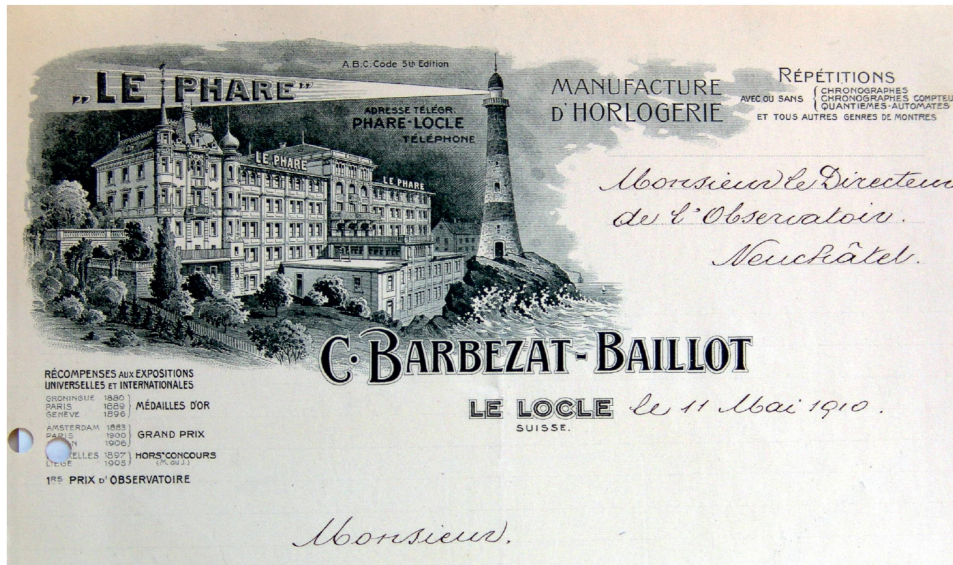 A.B.C. Code 5th Edition
„LE PHARE"
ADRESSE TÉLÉGR.
PHARE-LOCLE
TÉLÉPHONE
LE PHARE
LE PHARE
MANUFACTURE
D'HORLOGERIE
RÉPÉTITIONS
AVEC OU SANS
CHRONOGRAPHES
CHRONOGRAPHES COMPTEU
QUANTIÈMES-AUTOMATES
ET TOUS AUTRES GENRES DE MONTRES
Monsieur le Directeur
de l'Observatoir.
Neuchâtel.
C. BARBEZAT-BAILLOT
LE LOCLE le 11 Mai 1910.
SUISSE.
RÉCOMPENSES AUX EXPOSITIONS
UNIVERSELLES ET INTERNATIONALES
GRONINGUE 1880
PARIS 1889
GENÈVE 1896
MÉDAILLES D'OR
AMSTERDAM 1883
PARIS 1900
N 1906
GRAND PRIX
XELLES 1897
LIÈGE 1905
HORS CONCOURS
(M. du J.)
1RS PRIX D'OBSERVATOIRE
Monsieur.